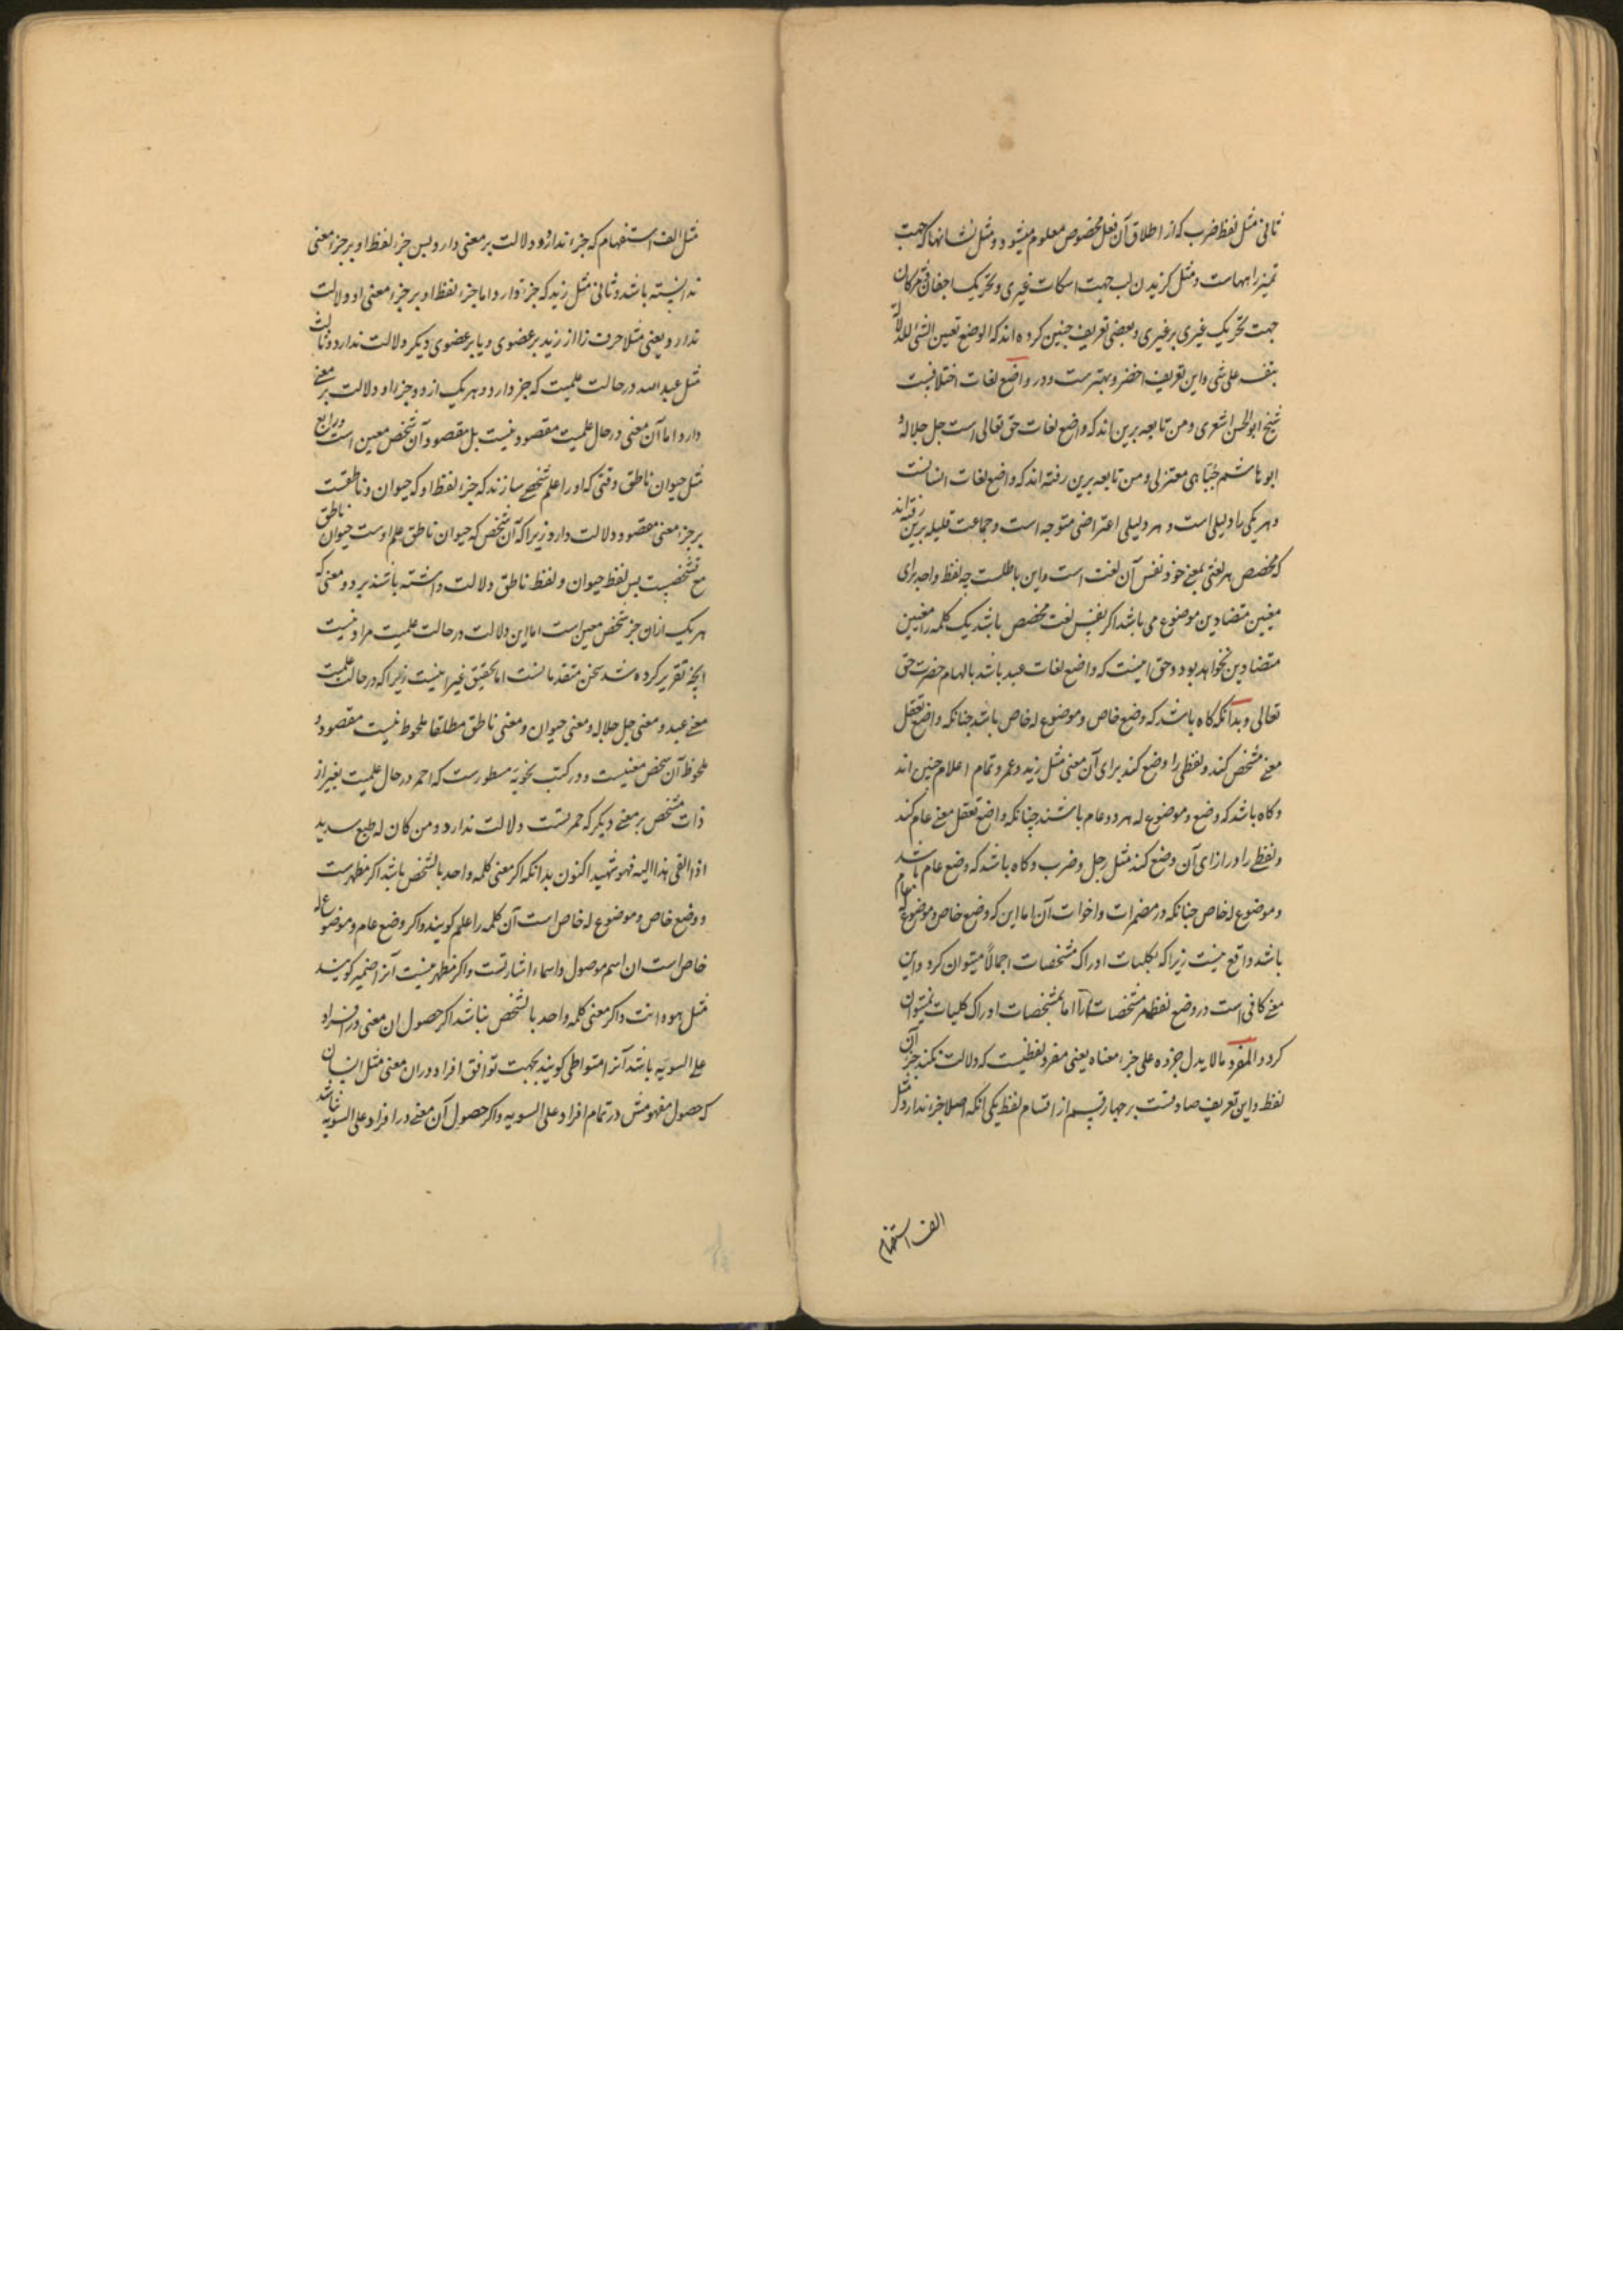 ثانی مثل لفظ ضرب که از اطلاق آن فعل مخصوص معلوم میشود و مثل نشانها که جهت
تمیز راههاست و مثل کزیدن لب جهت اسکات غیری و تحریک اجفان و مژکان
جهت تحریک غیری بر غیری و بعضی تعریف چنین کرده اند که الوضع تعیین الشئ للدلالة
بنفسه علی شی و این تعریف اخصر و بهترست و در واضع لغات اختلافیست
شیخ ابو الحسن اشعری و من تابعه برین اند که واضع لغات حق تعالی است جل جلاله و
ابو هاشم جبّاءی معتزلی و من تابعه برین رفته اند که واضع لغات انسانست
و هر یکی را دلیلی است و هر دلیلی اعتراضی متوجه است و جماعت قلیله برین رفته اند
که مخصص هر لغتی بمعنی خود نفس آن لغت است و این باطلست چه لفظ واحد برای
معنیین متضادین موضوع می باشد اکر نفس لغت مخصص باشد یک کلمه را معنیین
متضادین نخواهد بود و حق اینست که واضع لغات عبد باشد بالهام حضرت حق
تعالی و بدانکه کاه باشد که وضع خاص و موضوع له خاص باشد چنانکه واضع تعقل
معنی مشخص کند و لفظی را وضع کند برای آن معنی مثل زید و عمرو تمام اعلام چنین اند
و کاه باشد که وضع و موضوع له هر دو عام باشند چنانکه واضع تعقل معنی عام کند
و لفظی را در ازای آن وضع کند مثل رجل و ضرب و کاه باشد که وضع عام باشد
و موضوع له خاص چنانکه در مضمرات و اخوات آن اما این که وضع خاص و موضوع له عام
باشد واقع نیست زیرا که بکلیات ادراک مشخصات اجمالاً میتوان کرد و این
معنی کافی است در وضع لفظ مر مشخصات را اما بمشخصات ادراک کلیات نمیتوان
کرد و المفرد ما لا یدل جزوه علی جزء معناه یعنی مفرد لفظیست که دلالت نکند جزء آن
لفظ و این تعریف صادقست بر چهار قسم از اقسام لفظ یکی آنکه اصلا جزء ندارد مثل
الف استفهام
مثل الف استفهام که جزء ندارد و دلالت بر معنی دارد پس جزء لفظ او بر جزء معنی
ندانسته باشد و ثانی مثل زید که جزء دارد اما جزء لفظ او بر جزء معنی او دلالت
ندارد یعنی مثلا حرف زا از زید بر عضوی و یا بر عضوی دیکر دلالت ندارد و ثالث
مثل عبد الله در حالت علمیت که جزء دارد و هر یک از دو جزء او دلالت بر معنی
دارد اما آن معنی در حال علمیت مقصود نیست بل مقصود آن شخص معین است و رابع
مثل حیوان ناطق وقتی که او را علم شخصی سازند که جزء لفظ او که حیوان و ناطقست
بر جزء معنی مقصود دلالت دارد زیرا که آن شخص که حیوان ناطق علم اوست حیوان ناطق
مع تشخصیست پس لفظ حیوان و لفظ ناطق دلالت داشته باشند بر دو معنی که
هر یک ازان جزء شخص معین است اما این دلالت در حالت علمیت مراد نیست
آنچه تقریر کرده شد سخن متقدمانست اما تحقیق غیر اینست زیرا که در حالت علمیت
معنی عبد و معنی جل جلاله و معنی حیوان و معنی ناطق مطلقا ملحوظ نیست مقصود و
ملحوظ آن شخص معنیست و در کتب نحویه مسطورست که احمر در حال علمیت بغیر از
ذات مشخص بر معنی دیکر که حمرتست دلالت ندارد و من کان له طبع سدید
اذا القی هذا الیه فهو شهید اکنون بدانکه اکر معنی کلمه واحد بالشخص باشد اکر مظهرست
و وضع خاص و موضوع له خاص است آن کلمه را علم کویند و اکر وضع عام و موضوع له
خاص است ان اسم موصول و اسماء اشارتست و اکر مظهر نیست آنرا ضمیر کویند
مثل هو و انت و اکر معنی کلمه واحد بالشخص نباشد اکر حصول ان معنی در افراد
علی السویّه باشد آنرا متواطی کویند بجهت توافق افراد دران معنی مثل انسان
که حصول مفهومش در تمام افراد علی السویه و اکر حصول آن معنی در افراد علی السویه نباشد